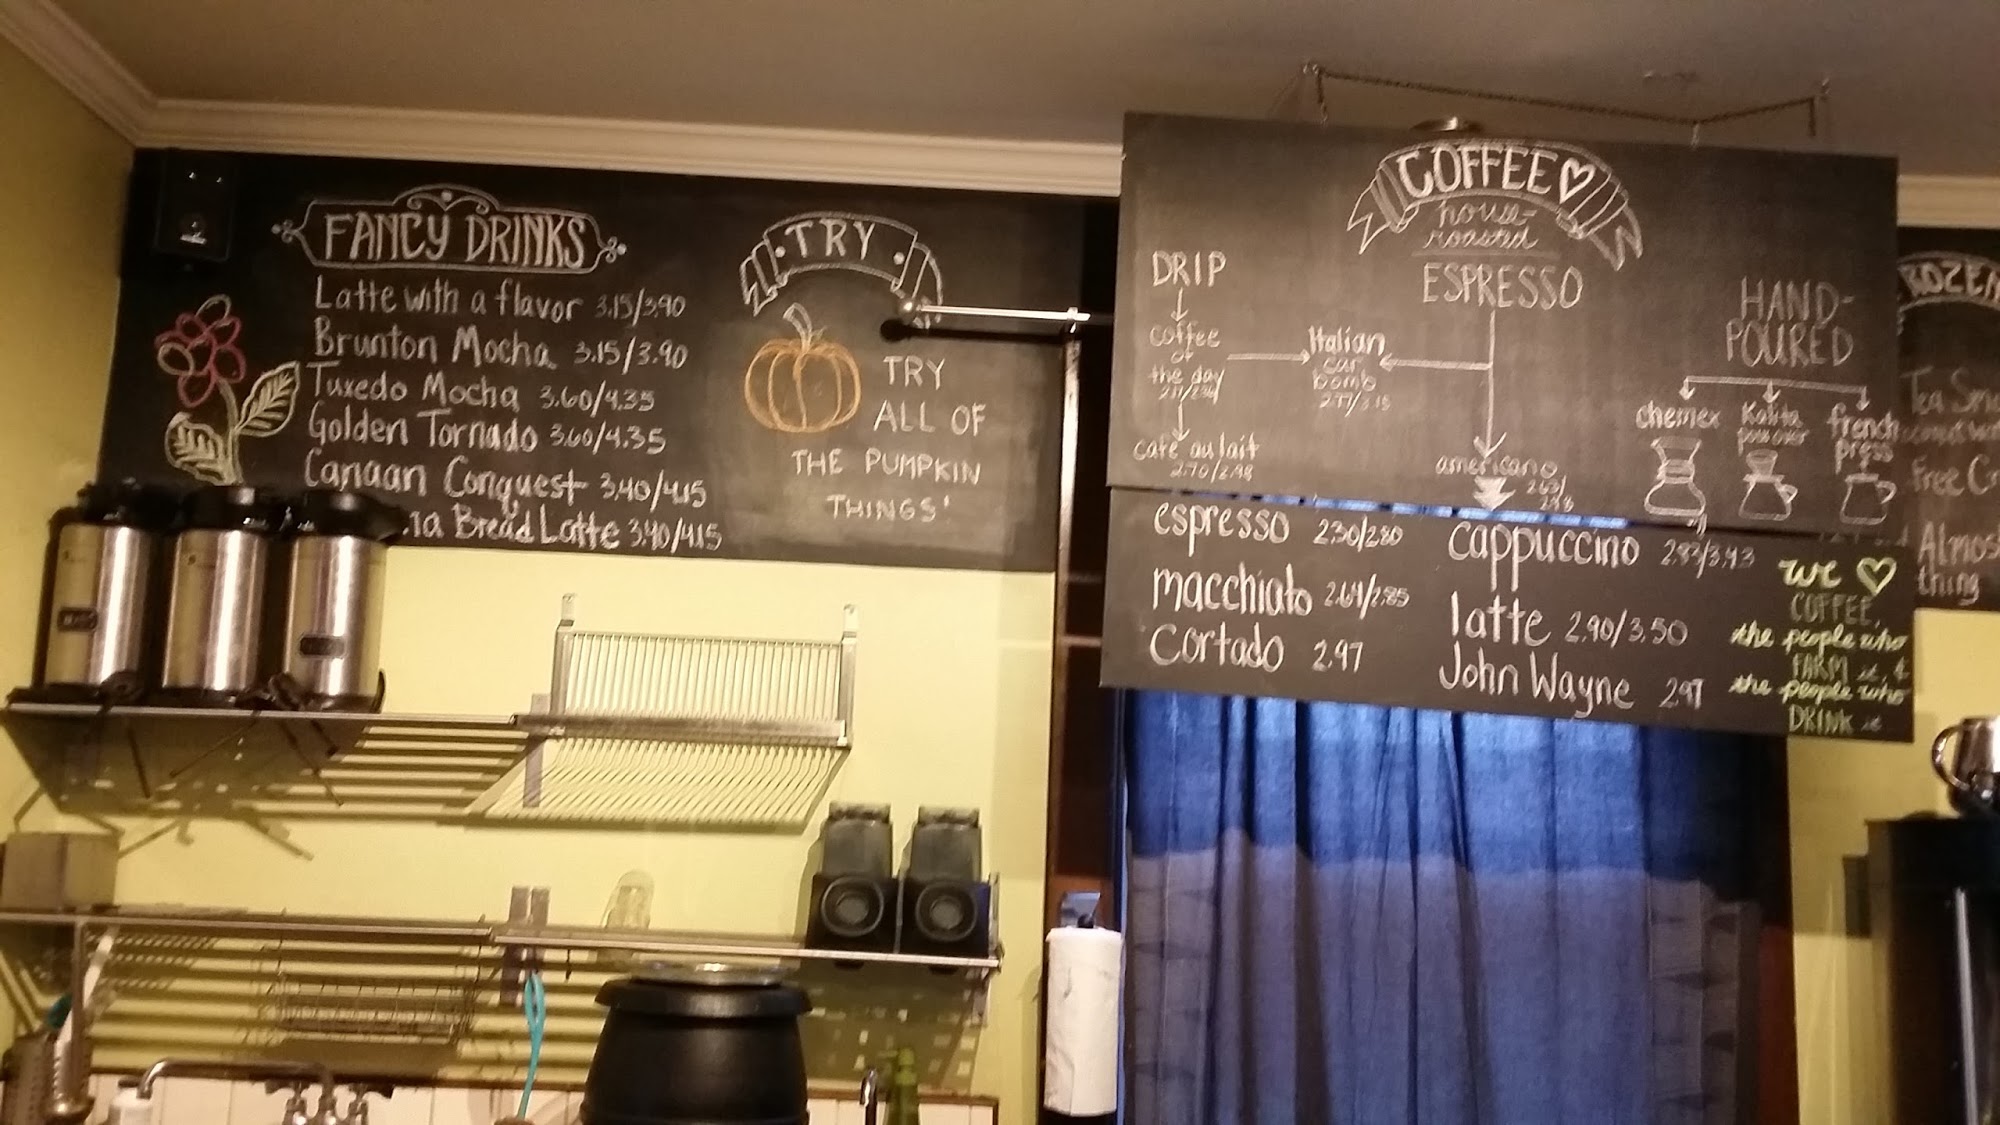 FANCY DRINKS
Latte with a flavor 3.15/3.90
Brunton Mocha 3.15/3.90
Tuxedo Mocha 3.60/4.35
Golden Tornado 3.60/4.35
Canaan Conquest 3.40/4.15
Bread Latte 3.40/4.15
TRY
TRY
ALL OF
THE PUMPKIN
THINGS'
COFFEE
house-
roasted
DRIP
coffee
of
the day
café au lait
Italian
car
bomb
ESPRESSO
americano
HAND-
POURED
chemex
Kalita
pour over
french
press
espresso 2.30/2.80
macchiato 2.64/2.85
Cortado 2.97
cappuccino
latte 2.90/3.50
John Wayne 2.97
we
COFFEE,
the people who
FARM it, &
the people who
DRINK it
Tea
Free
Almos
thing